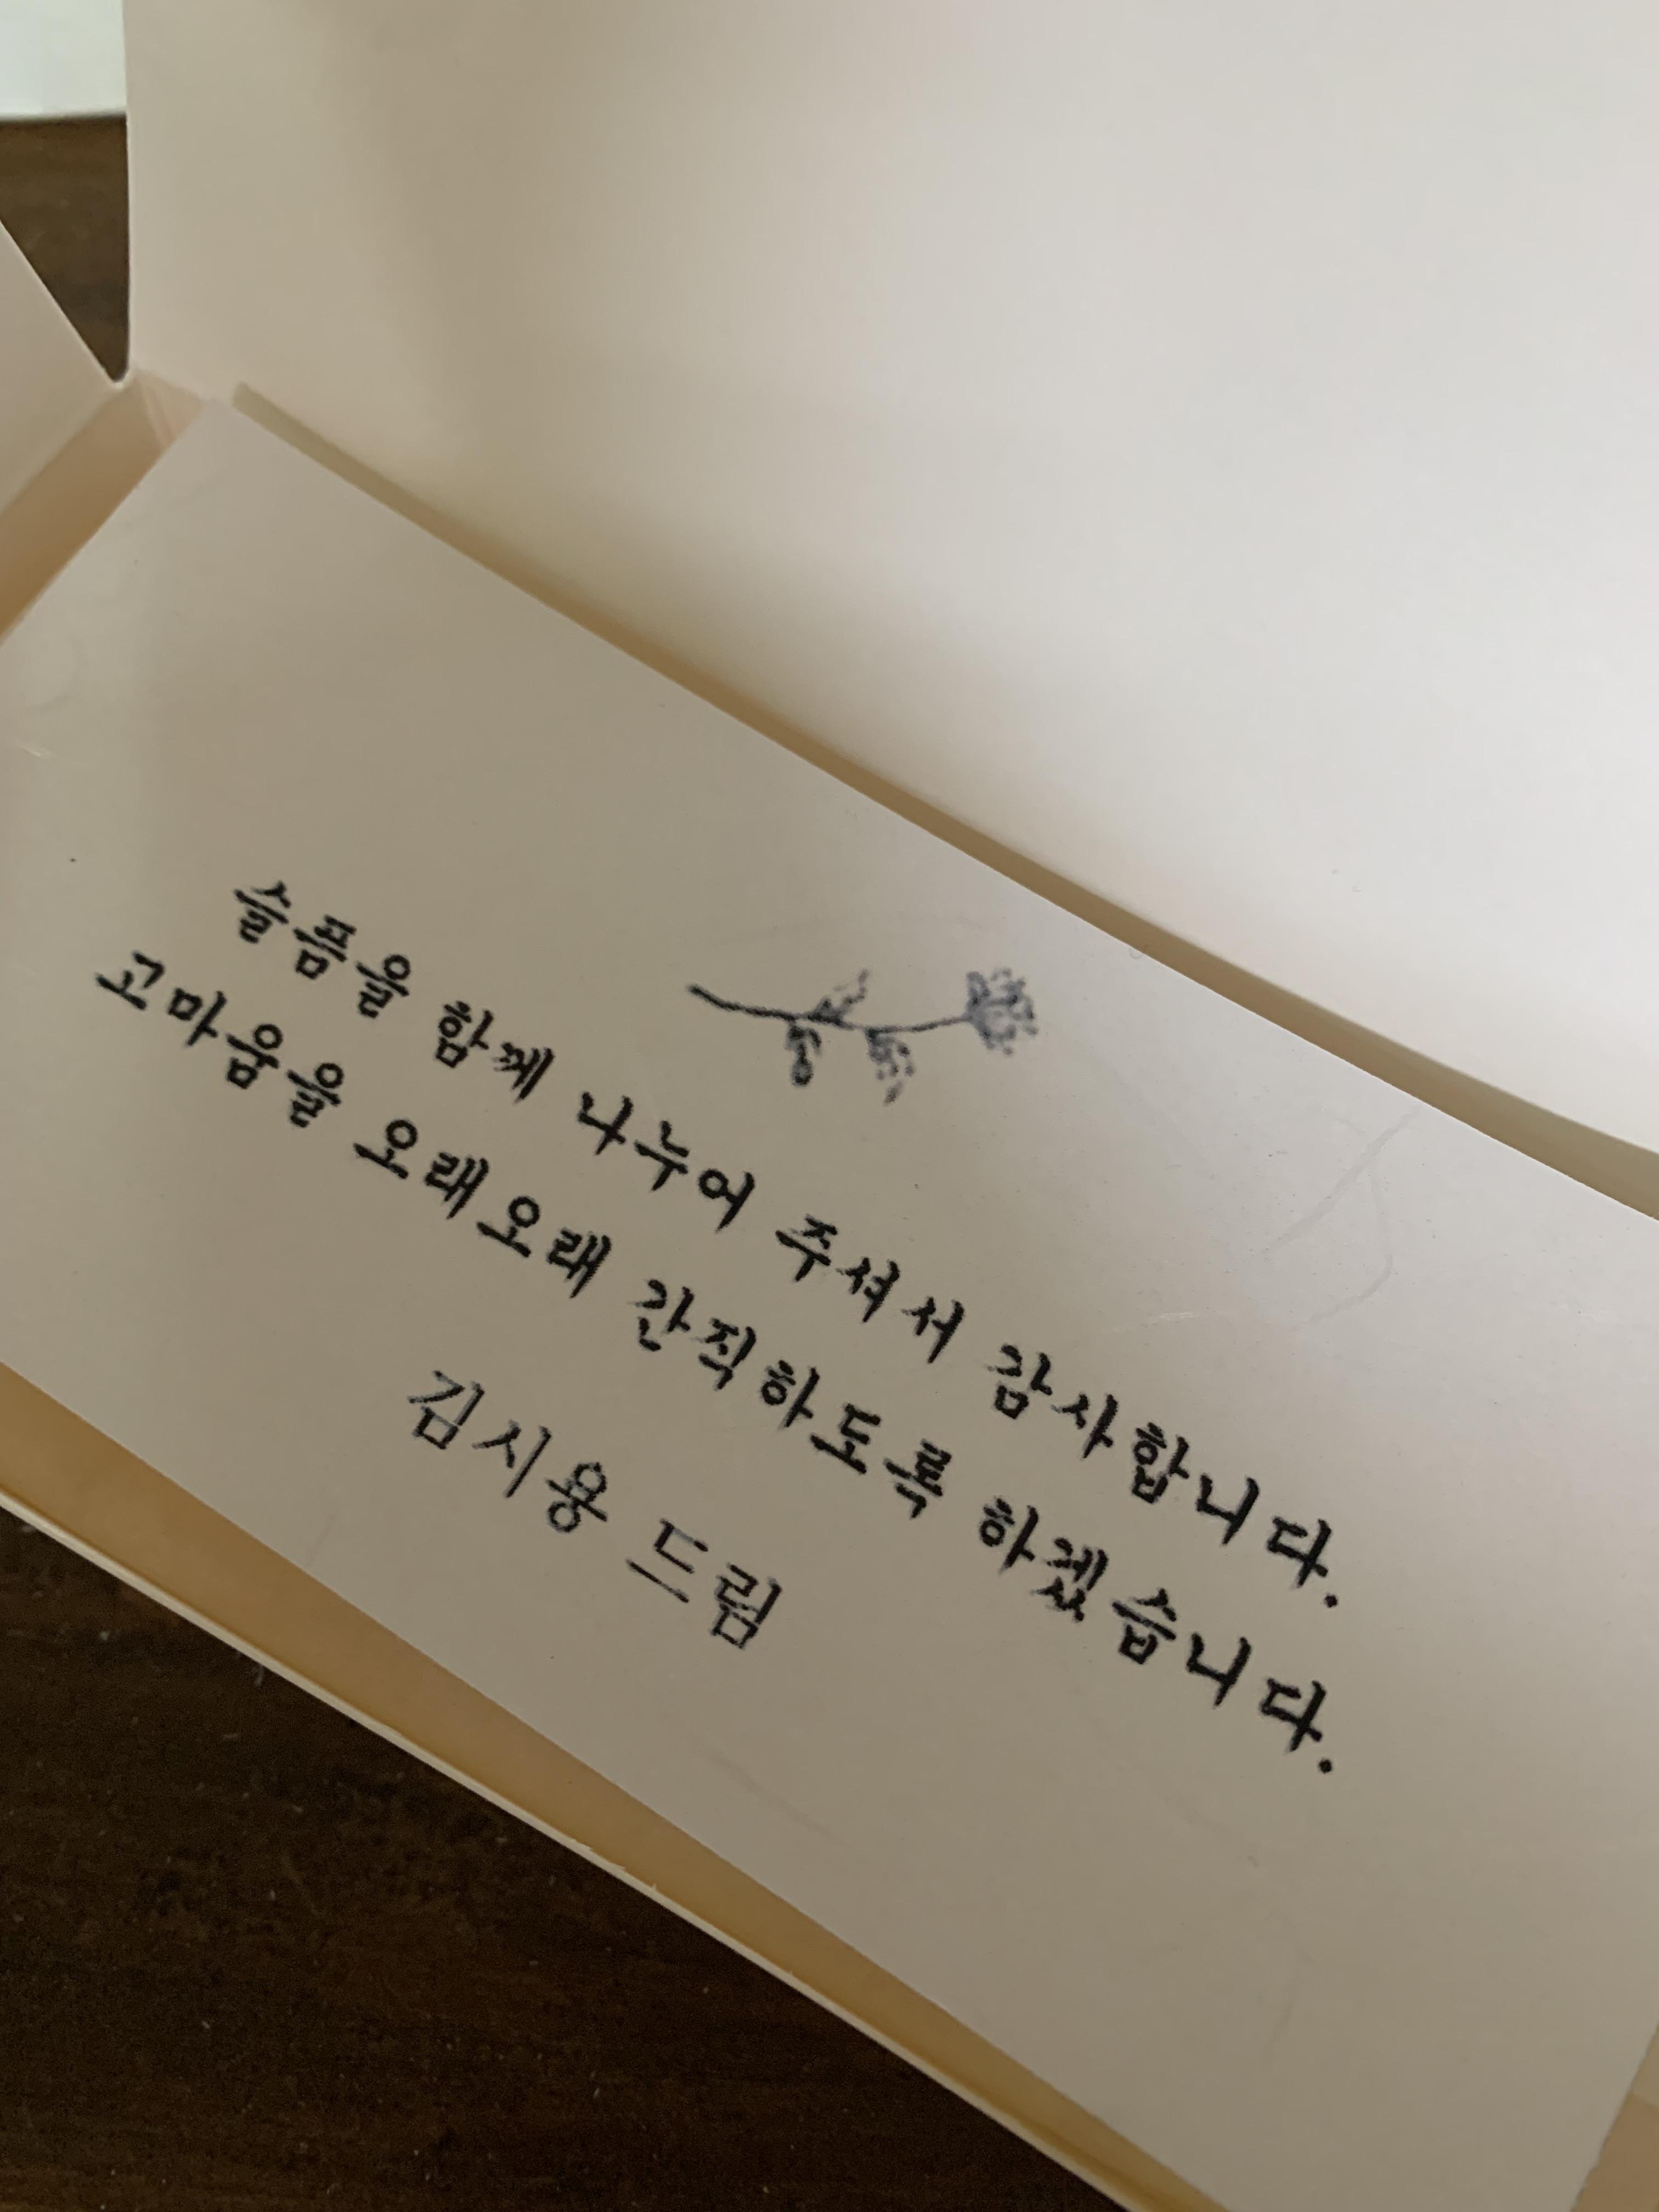 슬픔을 함께 나누어 주셔서 감사합니다.
고마움을 오래오래 간직하도록 하겠습니다.
김시용 드림